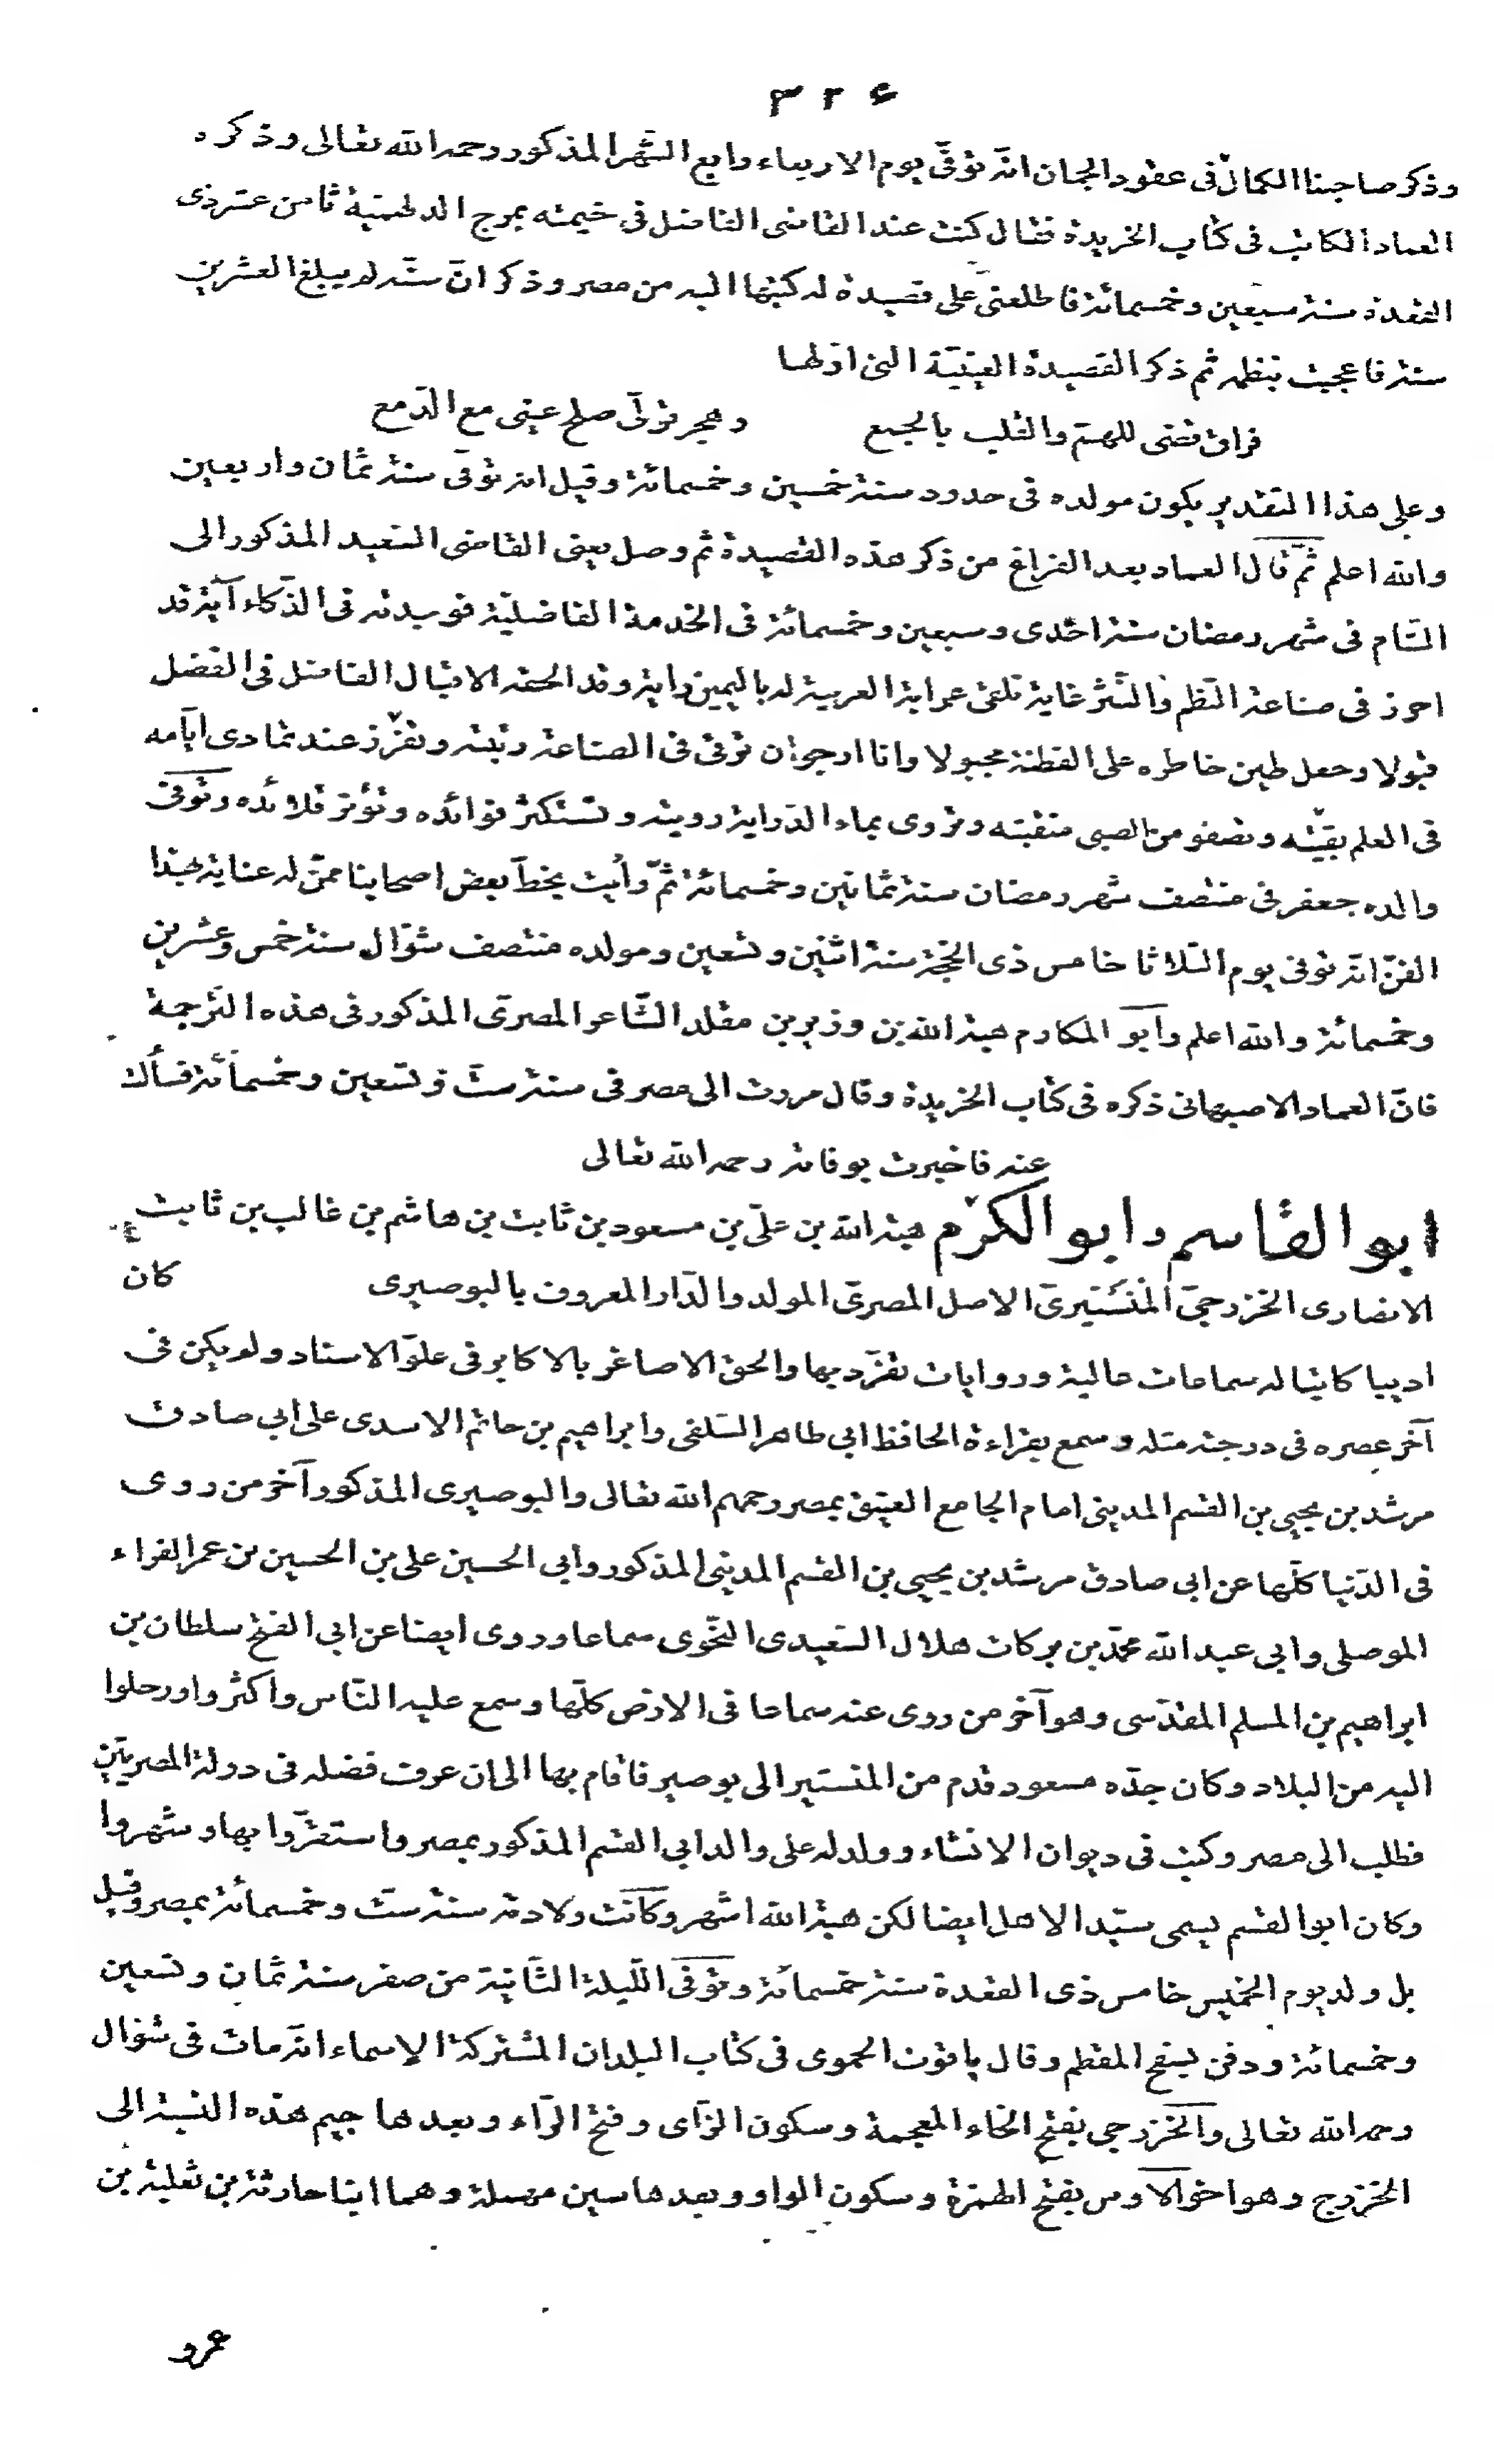 ٣٢٤
وذكر صاحبنا الكمال فى عقود الجمان انّه توفّى يوم الاربعاء رابع الشّهر المذكور رحمه الله تعالى وذكره
العماد الكاتب فى كتاب الخريدة فقال كنت عند القاضى الفاضل فى خيمته بمرج الدلهمية ثامن عشر ذى
القعدة سنة سبعين وخمسمائة فاطلعنى على قصيدة له كتبها اليه من مصر وذكر انّ سنّه لم يبلغ العشرين
سنة فاعجبت بنظمه ثم ذكر القصيدة العينيّة التى اوّلها
فراق قضى للهمّ والقلب بالجمع وهجر تولّى صلح عينى مع الدّمع
وعلى هذا التقدير يكون مولده فى حدود سنة خمسين وخمسمائة وقيل انه توفى سنة ثمان واربعين
والله اعلم ثمّ قال العماد بعد الفراغ من ذكر هذه القصيدة ثم وصل يعنى القاضى السّعيد المذكور الى
الشّام فى شهر رمضان سنة احدى وسبعين وخمسمائة فى الخدمة الفاضليّة فوجدته فى الذّكاء آية قد
احرز فى صناعة النّظم والنّثر غاية تلقى عرابة العربية له باليمين راية وقد الحفه الاقبال الفاضل فى الفضل
قبولا وجعل طين خاطره على الفطنة مجبولا وانا ارجو ان ترقى فى الصناعة رتبته وتغزز عند تمادى ايّامه
فى العلم بقيّته وتصفو من الصبى منقبته وتروى بماء الدّراية رويته وتستكثر فوائده وتؤثر قلائده وتوفى
والده جعفر فى منتصف شهر رمضان سنة ثمانين وخمسمائة ثمّ رأيت بخطّ بعض اصحابنا ممّن له عناية بهذا
الفنّ انّه توفى يوم الثلاثا خامس ذى الحجّة سنة اثنين وتسعين ومولده منتصف شوّال سنة خمس وعشرين
وخمسمائة والله اعلم وابو المكارم هبة الله بن وزير بن مقلد الشّاعر المصرىّ المذكور فى هذه التّرجمة
فانّ العماد الاصبهانى ذكره فى كتاب الخريدة وقال مررت الى مصر فى سنة ستّ وتسعين وخمسمائة فسألت
عنه فاخبرت بوفاته رحمه الله تعالى
ابو القاسم وابو الكرم هبة الله بن علىّ بن مسعود بن ثابت بن هاشم بن غالب بن ثابت
الانصارى الخزرجىّ المُنَسْتيرىّ الاصل المصرىّ المولد والدّار المعروف بالبوصيرى كان
اديبا كاتبا له سماعات عالية وروايات تفرّد بها والحق الاصاغر بالاكابر فى علوّ الاسناد ولم يكن فى
آخر عصره فى درجته مثله وسمع بقراءة الحافظ ابى طاهر السّلفى وابراهيم بن حاتم الاسدى على ابى صادق
مرشد بن يحيى بن القسم المدينى امام الجامع العتيق بمصر رحمهم الله تعالى والبوصيرى المذكور آخر من روى
فى الدّنيا كلّها عن ابى صادق مرشد بن يحيى بن القسم المدينى المذكور وأبى الحسين على بن الحسين بن عمر الفراء
الموصلى وابى عبد الله محمّد بن بركات هلال السّعيدى النّحوى سماعا وروى ايضا عن ابى الفتح سلطان بن
ابراهيم بن المسلم المقدّسى وهو آخر من روى عنه سماعا فى الارض كلّها وسمع عليه النّاس واكثروا ورحلوا
اليه من البلاد وكان جدّه مسعود قدم من المنستير الى بوصير فاقام بها الى ان عرف فضله فى دولة المصريّين
فطلب الى مصر وكتب فى ديوان الانشاء وولد له على والد ابى القسم المذكور بمصر واستقرّوا بها وشهروا
وكان ابو القسم يسمى سيّد الاهل ايضا لكن هبة الله اشهر وكانت ولادته سنة ستّ وخمسمائة بمصر وقيل
بل ولد يوم الخميس خامس ذى القعدة سنة خمسمائة وتوفى اللّيلة الثّانية من صفر سنة ثمان وتسعين
وخمسمائة ودفن بسفح المقطم وقال ياقوت الحموى فى كتاب البلدان المشتركة الاسماء انّه مات فى شوّال
رحمه الله تعالى والخزرجى بفتح الخاء المعجمة وسكون الزّاى وفتح الرّاء وبعدها جيم هذه النسبة الى
الخزرج وهو اخو الاوس بفتح الهمزة وسكون الواو وبعدها سين مهملة وهما ابنا حارثة بن ثعلبة بن
عمرو